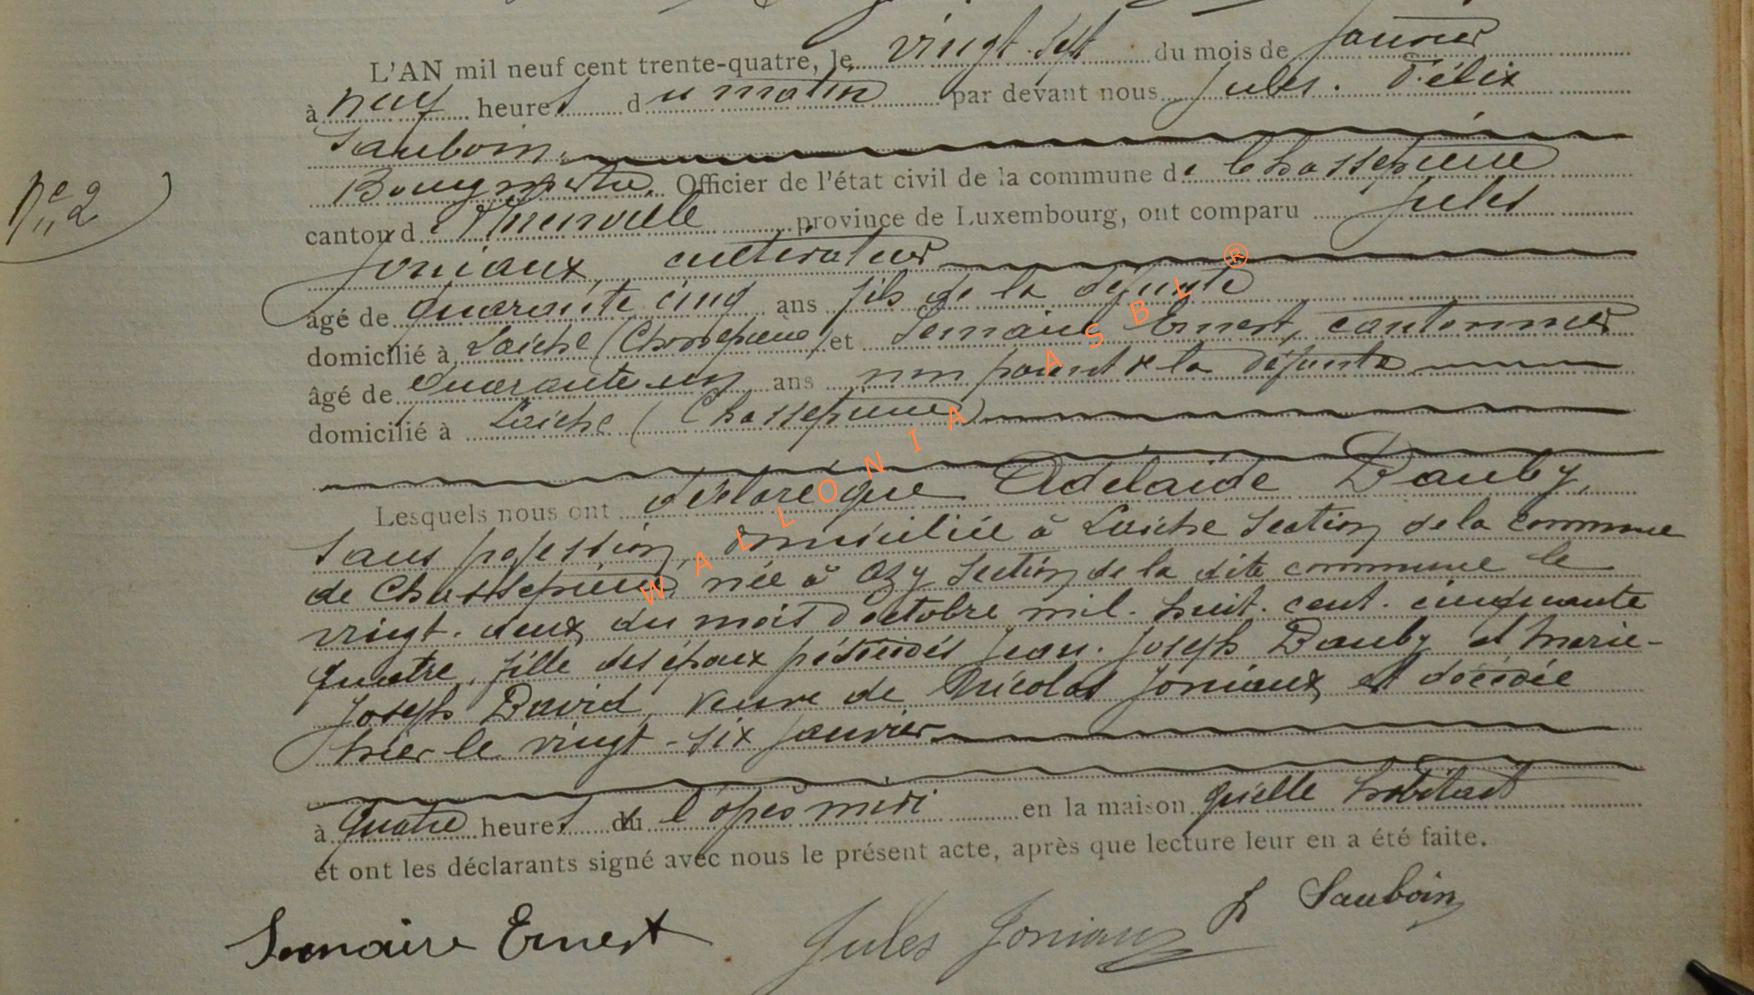 L'AN mil neuf cent trente-quatre, le vingt-sept du mois de Janvier
à neuf heures du matin par devant nous Jules. Félix
Sauboin.
Bourgmestre, Officier de l'état civil de la commune de Chassepierre
canton d province de Luxembourg, ont comparu Jules
Joniaux, cultivateur
âgé de quarante cinq ans fils de la défunte
domicilié à Laiche (Chassepierre) et Semaire Ernest, cantonnier
âgé de Quarante un ans non parent de la défunte
domicilié à Laiche (Chassepierre)
Lesquels nous ont déclaré que Adelaïde Dauby,
sans profession, domiciliée à Laiche section de la commune
de Chassepierre, née à Azy section de la dite commune le
vingt-deux du mois d'octobre mil. huit. cent. cinquante
quatre, fille des époux décédés Jean. Joseph Dauby et Marie-
Joseph David, veuve de Nicolas Joniaux, est décédée
hier le vingt-six janvier
à quatre heures de l'après midi en la maison qu'elle habitait
et ont les déclarants signé avec nous le présent acte, après que lecture leur en a été faite.
Semaire Ernest Jules Joniaux J Sauboin
N° 2
WALLONIA ASBL ®